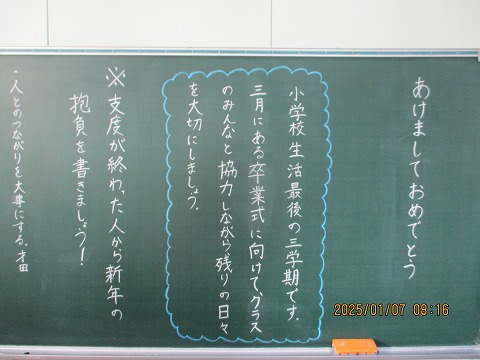 あけましておめでとう
小学校生活最後の三学期です。
三月にある卒業式に向けて、クラス
のみんなと協力しながら残りの日々
を大切にしましょう。
※支度が終わった人から新年の
抱負を書きましょう！
・人とのつながりを大事にする。才田
2025/01/07 08:16